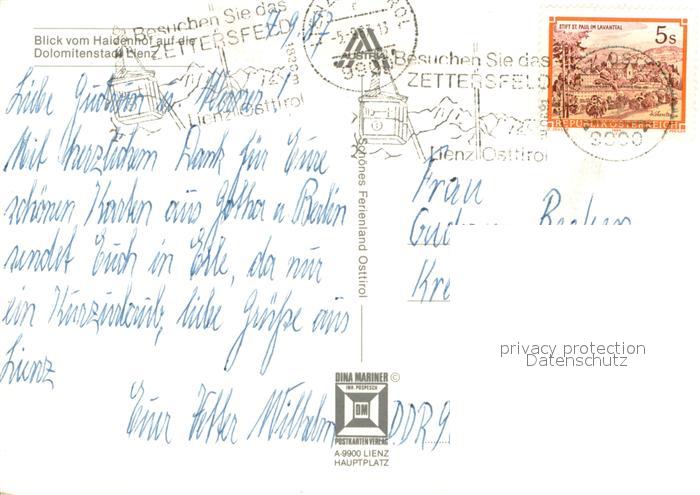 Besuchen Sie das
ZETTERSFELD
1829 m
Lienz/Osttirol
7.9.87
Blick vom Haidenhof auf die
Dolomitenstadt Lienz
Liebe Gudrun u. Werner!
Mit herzlichem Dank für Eure
schönen Karten aus Gotha u. Berlin
sendet Euch in Eile, da nur
ein Kurzurlaub, liebe Grüße aus
Lienz
Euer Vetter Wilhelm
Schönes Ferienland Osttirol
AUSTRIA
9900
Besuchen Sie das
ZETTERSFELD
Lienz/Osttirol
STIFT ST. PAUL IM LAVANTTAL
5 s
REPUBLIK ÖSTERREICH
9900
Frau
Gudrun
Kre
DDR 9
privacy protection
Datenschutz
DINA MARINER ©
INH. POSPESCH
DM
POSTKARTEN VERLAG
A-9900 LIENZ
HAUPTPLATZ